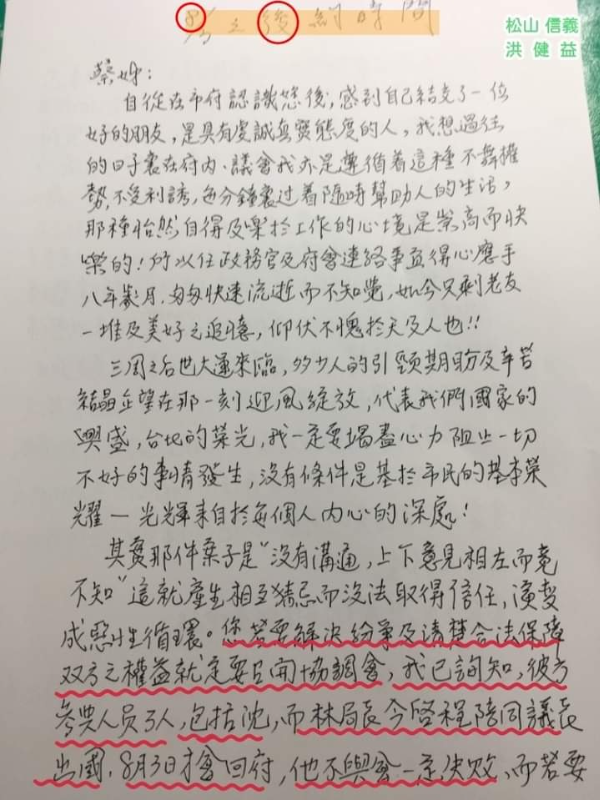 8/3之後 何時間
松山 信義
洪 健 益
蔡姊：
自從在市府認識您後，感到自己結交了一位
好的朋友，是具有虔誠真實態度的人，我想過往
的日子裏在府內、議會我亦是遵循着這種不畏權
勢，不受利誘，每分鐘裏过着隨時幫助人的生活，
那種怡然自得及樂於工作的心境是崇高而快
樂的！所以任政務官及府會連絡事宜得心應手
八年歲月，匆匆快速流逝而不知覺，如今只剩老友
一堆及美好之追憶，仰伏不愧於天及人也!!
三周之后世大運來臨，多少人的引頸期盼及辛苦
結晶企望在那一刻迎風綻放，代表我們國家的
興盛，台北的榮光，我一定要竭盡心力阻止一切
不好的事情發生，沒有條件是基於市民的基本榮
耀—光輝來自於每個人內心的深處！
其實那件案子是"沒有溝通，上下意見相左而竟
不知"這就產生相互猜忌而沒法取得信任，演变
成惡性循環。您若要解決紛爭及清楚合法保障
双方之權益就定要召開協調會，我已詢知，彼方
參與人员3人，包括沈，而林局長今啓程陪同議長
出國，8月3日才會回府，他不與會一定失败，而若要